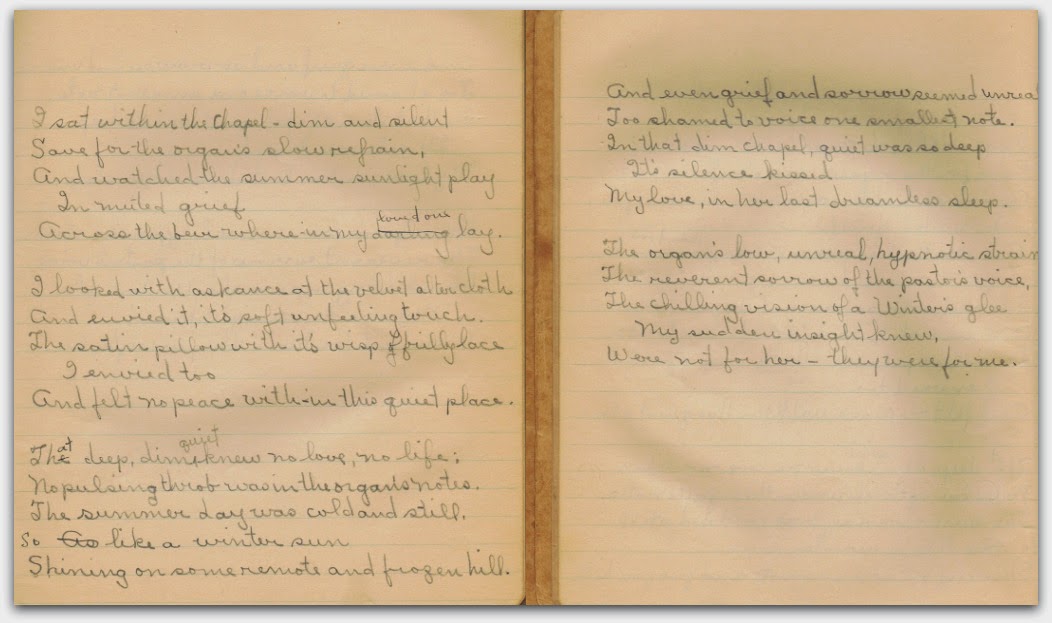 I sat within the chapel - dim and silent
Save for the organ's slow refrain,
And watched the summer sunlight play
In muted grief
loved one
Across the beir where-in my darling lay.
I looked with askance at the velvet alter cloth
And envied it, it's soft unfeeling touch.
The satin pillow with it's wisp of frilly lace
I envied too
And felt no peace with-in this quiet place.
quiet
That deep, dim, knew no love, no life;
No pulsing throb was in the organ's notes.
The summer day was cold and still.
So like a winter sun
Shining on some remote and frozen hill.
And even grief and sorrow seemed unreal
Too shamed to voice one smallest note.
In that dim chapel, quiet was so deep
It's silence kissed
My love, in her last dreamless sleep.
The organ's low, unreal, hypnotic strain
The reverent sorrow of the pastor's voice,
The chilling vision of a Winter's glee
My sudden insight knew,
Were not for her - they were for me.